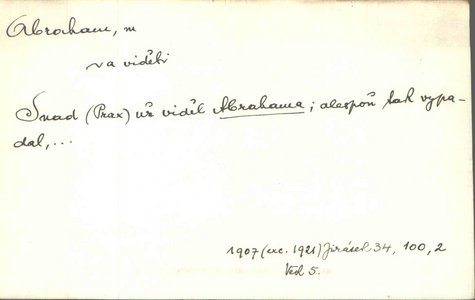 Abraham, m
va viděti
Snad (Prax) už viděl Abrahama; alespoň tak vypa-
dal,...
1907 (exc. 1921) Jirásek 34, 100, 2
Ved 5.